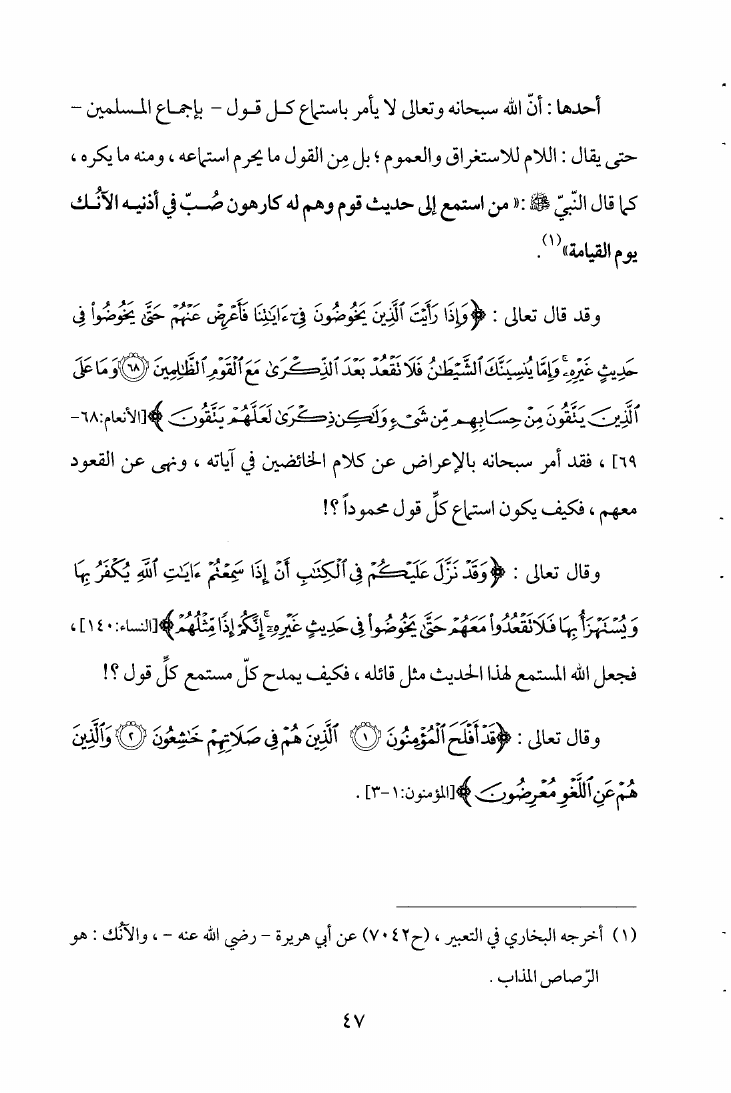 أحدها : أنّ الله سبحانه وتعالى لا يأمر باستماع كل قول – بإجماع المسلمين –
حتى يقال : اللام للاستغراق والعموم ؛ بل مِن القول ما يحرم استماعه ، ومنه ما يكره ،
كما قال النّبيّ ﷺ :« من استمع إلى حديث قوم وهم له كارهون صُبّ في أذنيه الآنُك
يوم القيامة»(١).
وقد قال تعالى : ﴿وَإِذَا رَأَيْتَ ٱلَّذِينَ يَخُوضُونَ فِىٓ ءَايَـٰتِنَا فَأَعْرِضْ عَنْهُمْ حَتَّىٰ يَخُوضُوا۟ فِى
حَدِيثٍ غَيْرِهِۦ ۚ وَإِمَّا يُنسِيَنَّكَ ٱلشَّيْطَـٰنُ فَلَا تَقْعُدْ بَعْدَ ٱلذِّكْرَىٰ مَعَ ٱلْقَوْمِ ٱلظَّـٰلِمِينَ ٦٨ وَمَا عَلَى
ٱلَّذِينَ يَتَّقُونَ مِنْ حِسَابِهِم مِّن شَىْءٍ وَلَـٰكِن ذِكْرَىٰ لَعَلَّهُمْ يَتَّقُونَ ﴾[الأنعام:٦٨-
٦٩] ، فقد أمر سبحانه بالإعراض عن كلام الخائضين في آياته ، ونهى عن القعود
معهم ، فكيف يكون استماع كلِّ قول محموداً ؟!
وقال تعالى : ﴿وَقَدْ نَزَّلَ عَلَيْكُمْ فِى ٱلْكِتَـٰبِ أَنْ إِذَا سَمِعْتُمْ ءَايَـٰتِ ٱللَّهِ يُكْفَرُ بِهَا
وَيُسْتَهْزَأُ بِهَا فَلَا تَقْعُدُوا۟ مَعَهُمْ حَتَّىٰ يَخُوضُوا۟ فِى حَدِيثٍ غَيْرِهِۦٓ ۚ إِنَّكُمْ إِذًا مِّثْلُهُمْ﴾[النساء:١٤٠] ،
فجعل الله المستمع لهذا الحديث مثل قائله ، فكيف يمدح كلّ مستمع كلِّ قول ؟!
وقال تعالى : ﴿قَدْ أَفْلَحَ ٱلْمُؤْمِنُونَ ١ ٱلَّذِينَ هُمْ فِى صَلَاتِهِمْ خَـٰشِعُونَ ٢ وَٱلَّذِينَ
هُمْ عَنِ ٱللَّغْوِ مُعْرِضُونَ ﴾[المؤمنون:١-٣] .
(١) أخرجه البخاري في التعبير ، (ح٧٠٤٢) عن أبي هريرة – رضي الله عنه – ، والآنُك : هو
الرّصاص المذاب .
٤٧